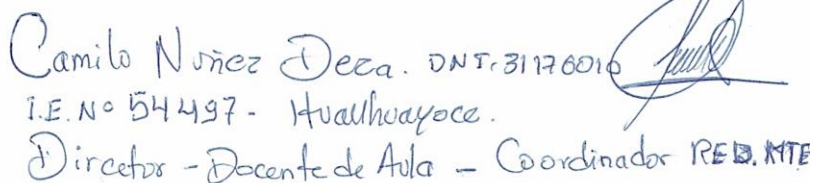 Camilo Nuñez Deza. DNI. 31176016
I.E. Nº 54497 - Huallhuayocc.
Director - Docente de Aula - Coordinador RED. MTE